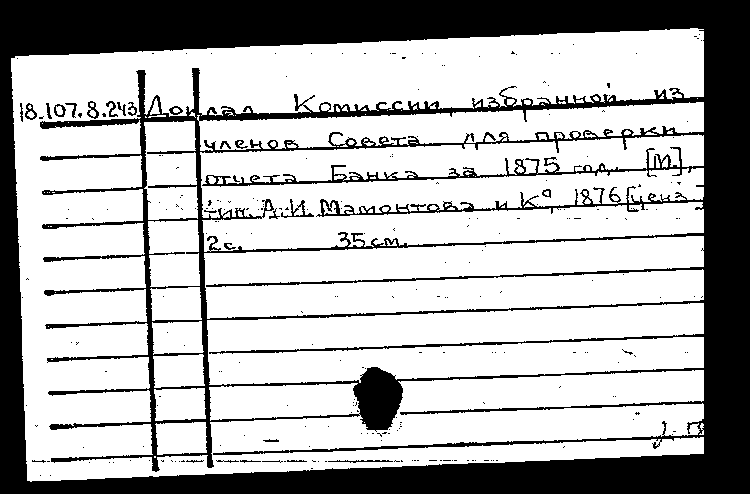 18.107.8.243 Доклад Комиссии, избранной из
членов Совета для проверки
отчета Банка за 1875 год. [М.],
тип. А.И. Мамонтова и К°, 1876 [ценз.]
2 с. 35 см.